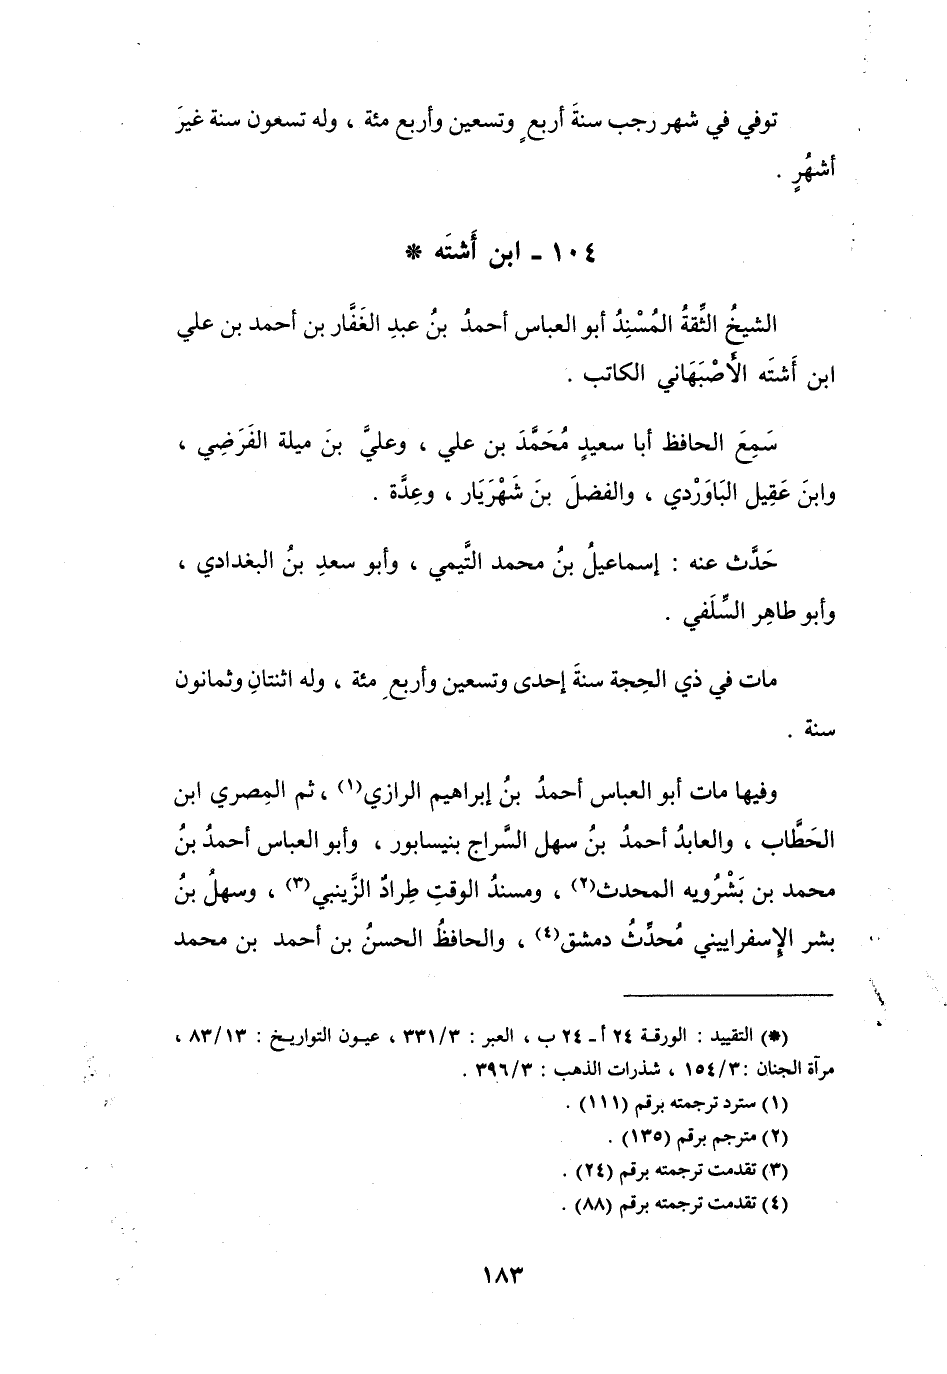 توفي في شهر رجب سنةَ أربعٍ وتسعين وأربع مئة ، وله تسعون سنة غيرَ
أشهُرٍ .
١٠٤ - ابن أَشتَه *
الشيخُ الثِّقةُ المُسْنِدُ أبو العباس أحمدُ بنُ عبدِ الغَفَّار بن أحمد بن علي
ابن أَشتَه الأَصْبَهَاني الكاتب .
سَمِعَ الحافظ أبا سعيدٍ مُحَمَّدَ بن علي ، وعليَّ بنَ ميلة الفَرَضِي ،
وابنَ عَقِيل البَاوَرْدي ، والفضلَ بنَ شَهْرَيَار ، وعِدَّة .
حَدَّث عنه : إسماعيلُ بنُ محمد التَّيمي ، وأبو سعدِ بنُ البغدادي ،
وأبو طاهِر السِّلَفي .
مات في ذي الحِجة سنةَ إحدى وتسعين وأربعِ مئة ، وله اثنتانِ وثمانون
سنة .
وفيها مات أبو العباس أحمدُ بنُ إبراهيم الرازي(١) ، ثم المِصري ابن
الحَطَّاب ، والعابدُ أحمدُ بنُ سهل السَّراج بنيسابور ، وأبو العباس أحمدُ بنُ
محمد بن بَشْرُويه المحدث(٢) ، ومسندُ الوقتِ طِرادٌ الزَّينبي(٣) ، وسهلُ بنُ
بشر الإِسفراييني مُحدِّثُ دمشق(٤) ، والحافظُ الحسنُ بن أحمد بن محمد
(*) التقييد : الورقة ٢٤ أ - ٢٤ ب ، العبر : ٣٣١/٣ ، عيون التواريخ : ٨٣/١٣ ،
مرآة الجنان : ١٥٤/٣ ، شذرات الذهب : ٣٩٦/٣ .
(١) سترد ترجمته برقم (١١١) .
(٢) مترجم برقم (١٣٥) .
(٣) تقدمت ترجمته برقم (٢٤) .
(٤) تقدمت ترجمته برقم (٨٨) .
١٨٣